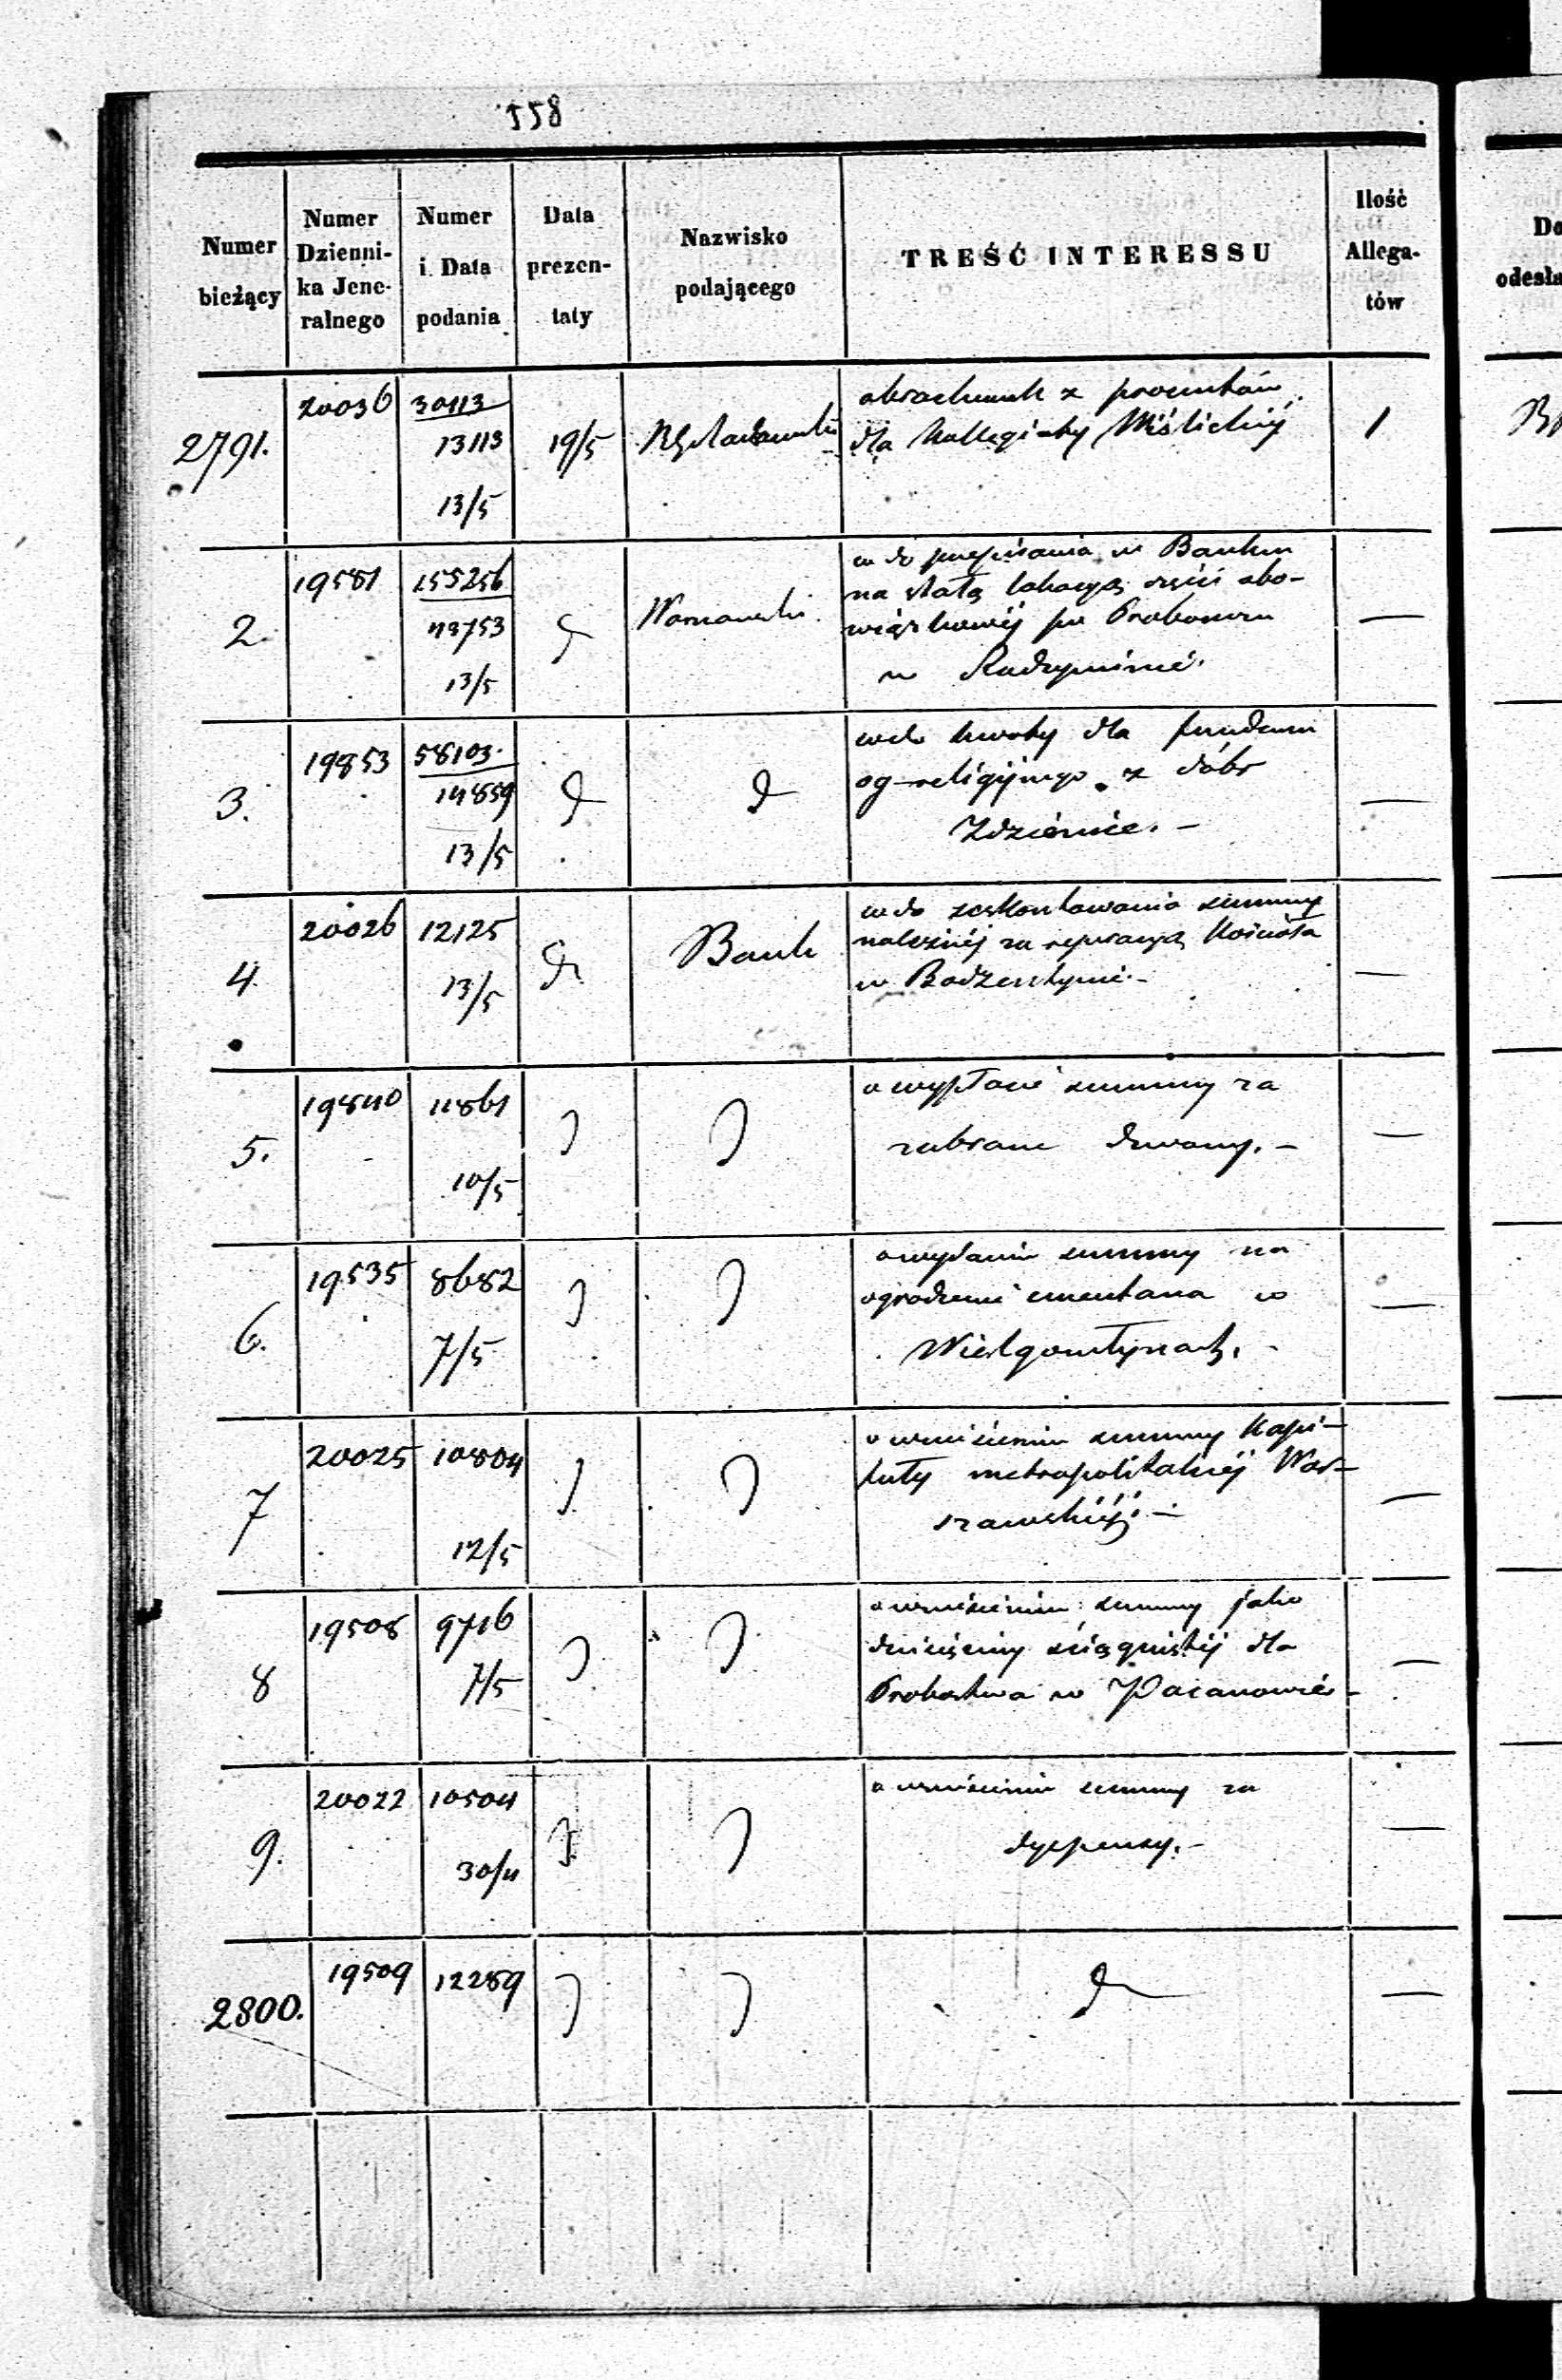 558
Numer bieżący | Numer Dzienni-ka Jene-ralnego | Numer i Data podania | Data prezen-taty | Nazwisko podającego | TREŚĆ INTERESSU | Ilość Allega-tów
Do
odesła
2791. | 20036 | 30113
13113
13/5 | 19/5 | | obrachunek z procentów
dla Kollegiaty Wiślickiej | 1
2. | 19581 | 155256
43753
13/5 | | Warszawski | w do przepisania w Banku
na stałą lokacyą części obo-
wiązkowej po Proboszczu
w Radzyminie.
3. | 19853 | 58103.
14859
13/5 | d | d | wdo kwoty dla funduszu
og-religijnego z dóbr
4. | 20026 | 12125
13/5 | d | Bank | wdo summy
należnej za reperacyą Kościoła
w Bodzentynie. -
5. | 19840 | 11861
10/5 | | | o wypłacie summy za
zabrane dzwony. -
6. | 19535 | 8682
7/5 | | | o wydaniu summy na
ogrodzenie cmentarza w
Wielgomłynach. -
7 | 20025 | 10804
12/5 | | | o wniesieniu summy Kapi-
tuły metropolitalnej War-
szawskiej. -
8 | 19508 | 9716
7/5 | | | o wniesieniu summy jako
dziesięciny ściągniętej dla
Probostwa w Pacanowie -
9. | 20022 | 10504
30/4 | | | o wniesieniu summy za
dyspensy. -
2800. | 19509 | 12289 | | | d | —